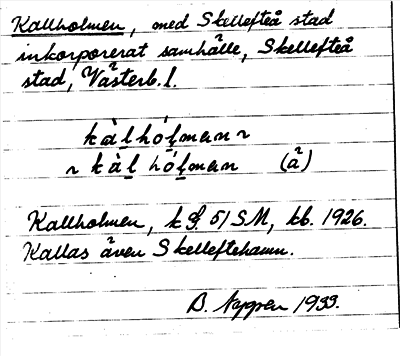 Kallholmen, med Skellefteå stad
inkorporerat samhälle, Skellefteå
stad, Västerb. l.
kàl̲hól̲man ~
~ kàl̲ hól̲man (å)
Kallholmen, k J. 51 SM, kb. 1926.
Kallas även Skelleftehamn.
B. 1933.